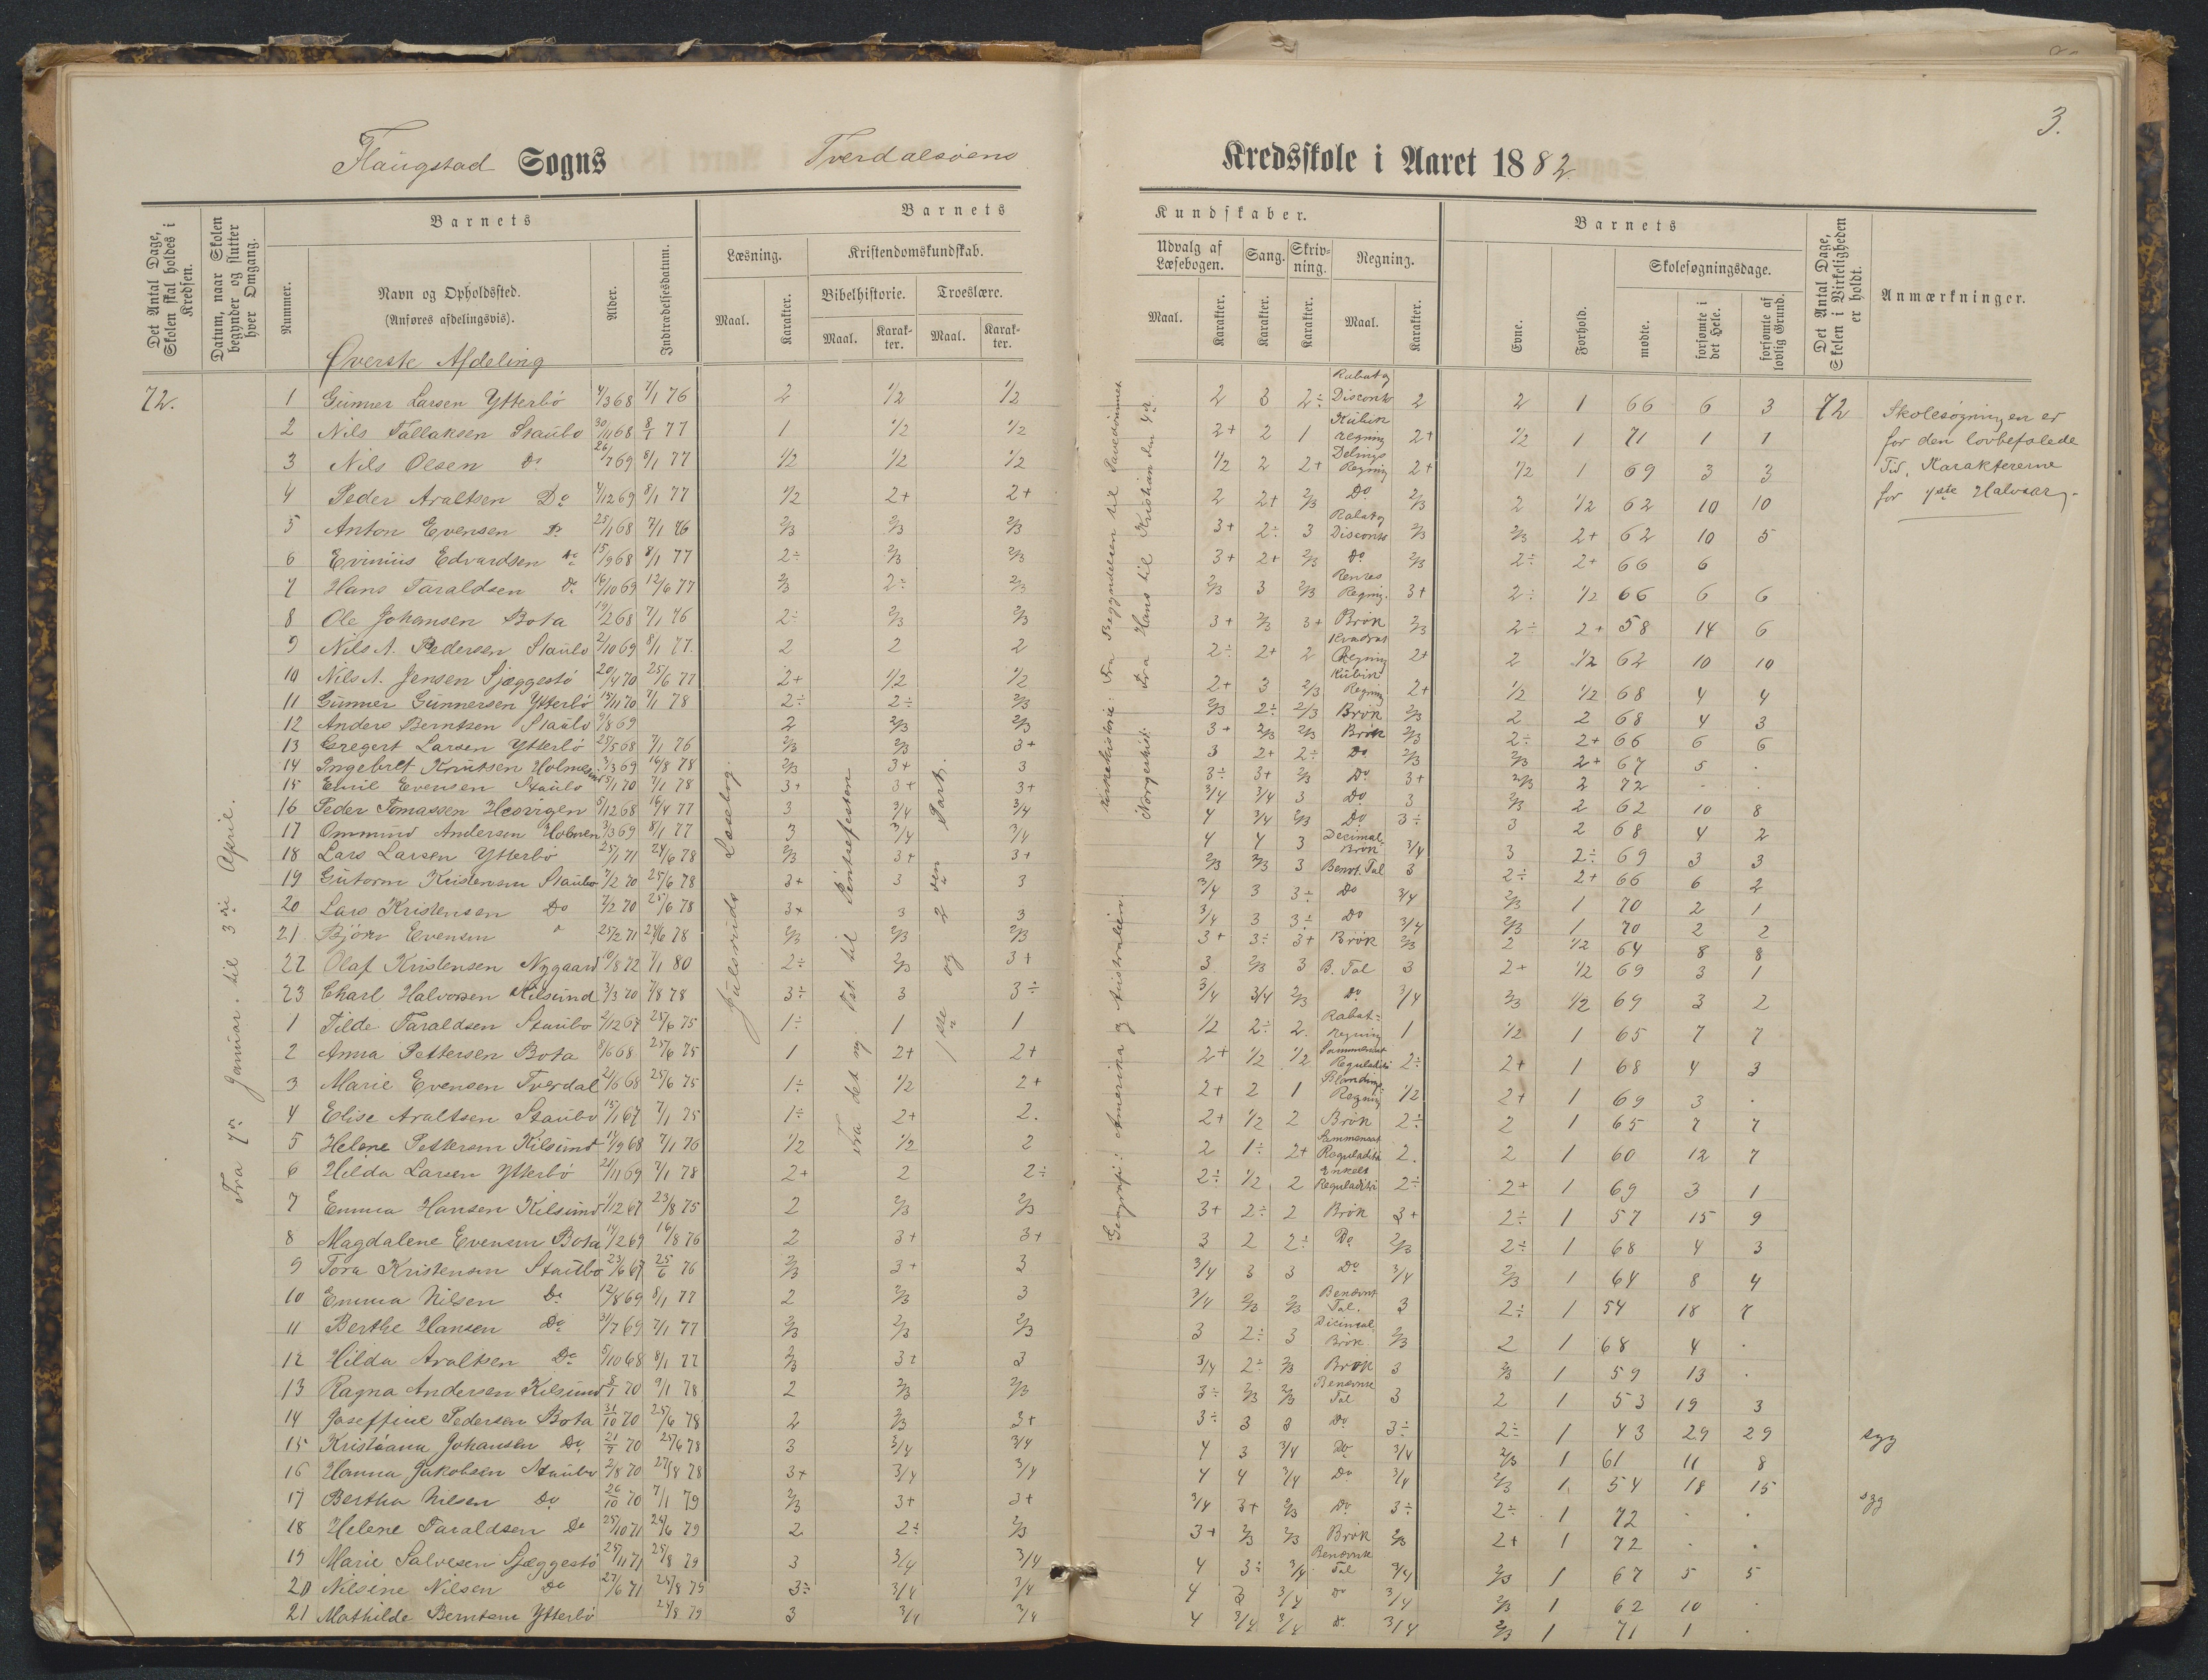 3.
Flaugstad Sogns Tverdalsøens Kredsskole i Aaret 1882.
Det Antal Dage, Skolen skal holdes i Kredsen.
Datum, naar Skolen begynder og slutter hver Omgang.
Barnets
Nummer.
Navn og Opholdssted.
(Anføres afdelingsvis).
Alder.
Indtrædelsesdatum.
Barnets Kundskaber.
Læsning.
Maal. Karakter.
Kristendomskundskab.
Bibelhistorie. Troeslære.
Maal. Karakter. Maal. Karakter.
Udvalg af Læsebogen.
Maal. Karakter.
Sang. Karakter.
Skrivning. Karakter.
Regning.
Maal. Karakter.
Barnets
Evne. Forhold.
Skolesøgningsdage.
mødte. forsømte i det Hele. forsømte af lovlig Grund.
Det Antal Dage, Skolen i Virkeligheden er holdt.
Anmærkninger.
Øverste Afdeling
72.
Fra 7de Januar til 3die April.
Jensens Læsebog.
Fra det ny Tst. til Pintsefesten
1ste og 2den Part.
Kirkehistorie: Fra Begyndelsen til Pavedømmet
Norgeshist: Fra Hans til Kristian den 4de.
Geografi: Amerika og Australien
1 Gunner Larsen Ytterbö 4/3 68 7/1 76 2 1/2 1/2 2 3 2÷ Rabat og Disconto 2 2 1 66 6 3 72
2 Nils Tallaksen Staubo 30/11 68 8/1 77 1 1/2 1/2 2+ 2 1 Kubikregning 2+ 1/2 1 71 1 1
3 Nils Olsen Do 26/7 69 8/1 77 1/2 1/2 1/2 1/2 2 2+ Delings Regning 2+ 1/2 1 69 3 3
4 Peder Araltsen Do 4/12 69 8/1 77 1/2 2+ 2+ 2 2+ 2/3 Do 2/3 2 1/2 62 10 10
5 Anton Evensen Do 25/1 68 7/1 76 2/3 2/3 2/3 3+ 2÷ 3 Rabat og Disconto 2/3 2/3 2+ 62 10 5
6 Evinius Edvardsen Do 15/9 68 8/1 77 2÷ 2/3 2/3 3+ 2+ 2/3 Do 2/3 2÷ 2+ 66 6
7 Hans Taraldsen Do 16/10 69 12/6 77 2/3 2÷ 2/3 2/3 3 2/3 Rentes Regning. 3+ 2÷ 1/2 66 6 6
8 Ole Johansen Bota 19/2 68 7/1 76 2÷ 2/3 2/3 3+ 2/3 3+ Brök 2/3 2÷ 2+ 58 14 6
9 Nils A. Pedersen Staubo 2/10 69 8/1 77. 2 2 2 2÷ 2+ 2 Kvadrat Regning 2+ 2 1/2 62 10 10
10 Nils A. Jensen Sjæggestö 20/4 70 25/6 77 2+ 1/2 1/2 2+ 3 2/3 Kubik Regning 2+ 1/2 1/2 68 4 4
11 Gunner Gunnersen Ytterbö 15/11 70 7/1 78 2÷ 2÷ 2/3 2/3 2÷ 2/3 Brök 2/3 2 2 68 4 3
12 Anders Berntsen Staubo 9/8 69 2 2/3 2/3 3+ 2/3 2/3 Brök 2/3 2÷ 2+ 66 6 6
13 Gregert Larsen Ytterbö 25/5 68 7/1 76 2/3 2/3 3+ 3 2+ 2÷ Do 2/3 2/3 2+ 67 5 .
14 Ingebret Knutsen Holmesund 3/3 69 16/8 78 2/3 3+ 3 3÷ 3+ 2/3 Do 3+ 2/3 2 72 . .
15 Emil Evensen Staubo 5/1 70 7/1 78 3+ 3+ 3+ 3/4 3/4 3 Do 3 2/3 2 62 10 8
16 Peder Tomassen Hesvigen 5/12 68 16/4 77 3 3/4 3/4 4 3/4 2/3 Do 3÷ 3 2 68 4 2
17 Ommund Andersen Holmen 3/3 69 8/1 77 3 3/4 3/4 4 4 3 Decimal-Brök 3/4 3 2÷ 69 3 3
18 Lars Larsen Ytterbö 25/1 71 24/6 78 2/3 3+ 3+ 2/3 2/3 3 Benvt. Tal 3 2÷ 2+ 66 6 2
19 Gutorm Kristensen Staubo 7/2 70 25/6 78 3+ 3 3 3/4 3 3÷ Do 3/4 2/3 1 70 2 1
20 Lars Kristensen Do 7/2 70 25/6 78 3+ 3 3 3/4 3 3÷ Do 3/4 2/3 1 70 2 2
21 Björn Evensen " 25/2 71 24/6 78 2/3 2/3 2/3 3+ 3÷ 3+ Brök 2/3 2 1/2 64 8 8
22 Olaf Kristensen Nygaard 10/8 72 7/1 80 2÷ 2/3 3+ 3 2/3 3 B. Tal 3 2+ 1/2 69 3 1
23 Charl Halvorsen Kilsund 3/3 70 7/8 78 3÷ 3 3÷ 3/4 3/4 2/3 Do 3/4 2/3 1/2 69 3 2
1 Tilde Taraldsen Staubo 2/12 67 25/6 75 1÷ 1 1 1/2 2÷ 2. Rabat-Regning 1 1/2 1 65 7 7
2 Anna Pettersen Bota 8/6 68 25/6 75 1 2+ 2+ 2+ 1/2 1/2 Sammensat Reguladetri 2÷ 2+ 1 68 4 3
3 Marie Evensen Tverdal 21/6 68 25/6 75 1÷ 1/2 2+ 2+ 2 1 Blandings Regning 1/2 2+ 1 69 3 .
4 Elise Araltsen Staubo 15/1 67 7/1 75 1÷ 2+ 2. 2+ 1/2 2 Brök 2÷ 2 1 65 7 7
5 Helene Pettersen Kilsund 14/9 68 7/1 76 1/2 1/2 2 2 1÷ 2+ Sammensat Reguladetri 2. 2 1 60 12 7
6 Hilda Larsen Ytterbö 21/11 69 7/1 78 2+ 2 2÷ 2÷ 1/2 2 Enkelt Reguladetri 2÷ 2+ 1 69 3 1
7 Emma Hansen Kilsund 1/12 67 23/8 75 2 2/3 2/3 3+ 2÷ 2 Brök 3+ 2÷ 1 57 15 9
8 Magdalene Evensen Bota 14/2 69 16/8 76 2 3+ 3+ 3 2 2÷ Do 2/3 2÷ 1 68 4 3
9 Tora Kristensen Staubo 23/6 67 25/6 76 2/3 3+ 3 3/4 3 3 Do 3/4 2/3 1 64 8 4
10 Emma Nilsen Do 12/8 69 8/1 77 2 2/3 3 3/4 2/3 2/3 Benævnt Tal. 3 2÷ 1 54 18 7
11 Berthe Hansen Do 31/7 69 7/1 77 2/3 2/3 2/3 3 2÷ 3 Dicimal-Brök. 2/3 2 1 68 4 .
12 Hilda Araltsen Do 5/10 68 8/1 77 2/3 3+ 3 3/4 2÷ 2/3 Brök 3 2/3 1 59 13 .
13 Ragna Andersen Kilsund 8/1 70 9/1 78 2 2/3 2/3 3÷ 2/3 2/3 Benævnte Tal 3 2 1 53 19 3
14 Joseffine Pedersen Bota 31/10 70 25/6 78 2 2/3 3+ 3÷ 3 3 Do 3÷ 2÷ 1 43 29 29 syg
15 Kristiana Johansen Do 21/7 70 25/6 78 3 3/4 3/4 4 3 3/4 Do 3/4 2/3 1 61 11 8
16 Hanna Jakobsen Staubo 2/8 70 27/8 78 3+ 3/4 3/4 4 4 3/4 Do 3/4 2/3 1 54 18 15 syg
17 Bertha Nilsen Do 26/10 70 7/1 79 2/3 3+ 3+ 3/4 3+ 2/3 Do 3÷ 2÷ 1 72 . .
18 Helene Taraldsen Do 25/10 71 24/6 79 2 2÷ 2/3 3+ 2/3 2/3 Brök 2/3 2+ 1 72 . .
19 Marie Salvesen Sjæggestö 25/11 71 25/8 79 3 3/4 3/4 4 3÷ 3/4 Benævnte Tal 3/4 2/3 1 67 5 5
20 Nilsine Nilsen Do 27/6 71 25/8 79 3÷ 3/4 3/4 4 3 3/4 Do 3/4 2/3 1 62 10 .
21 Mathilde Berntsen Ytterbö 24/8 79 3 3/4 3/4 4 3/4 3/4 Do 3/4 2/3 1 71 1 .
Skolesøgningen er
for den lovbefalede
Tid. Karaktererne
for 1ste Halvaar.